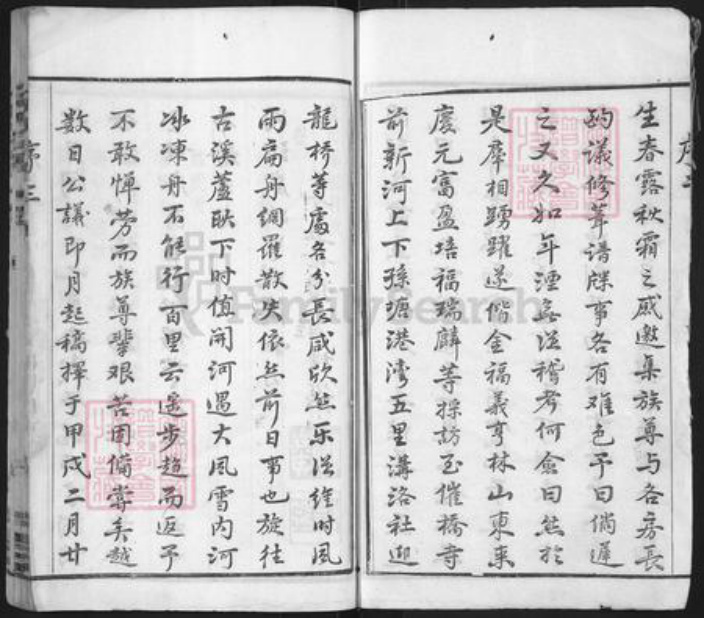 生春露秋霜之感邀集族尊与各房長
酌議修葺譜牒事各有难色予曰倘遲
之又久如年湮無從稽考何僉曰然於
是羣相踴躍遂偕金福義亨林山東來
慶元富盈培福瑞麟等採訪至催橋寺
前新河上下孫塘港湾五里溝洛社迎
龍桥等處各分長咸欣然乐從維时風
雨扁舟網羅散失依然前日事也旋往
古溪蘆墅下时值開河遇大風雪内河
冰凍舟不能行百里云遥步趋而返予
不敢惮劳而族尊輩艰苦固備嘗矣越
数日公議即月起稿擇于甲戌二月廿
序二
序三
FamilySearch